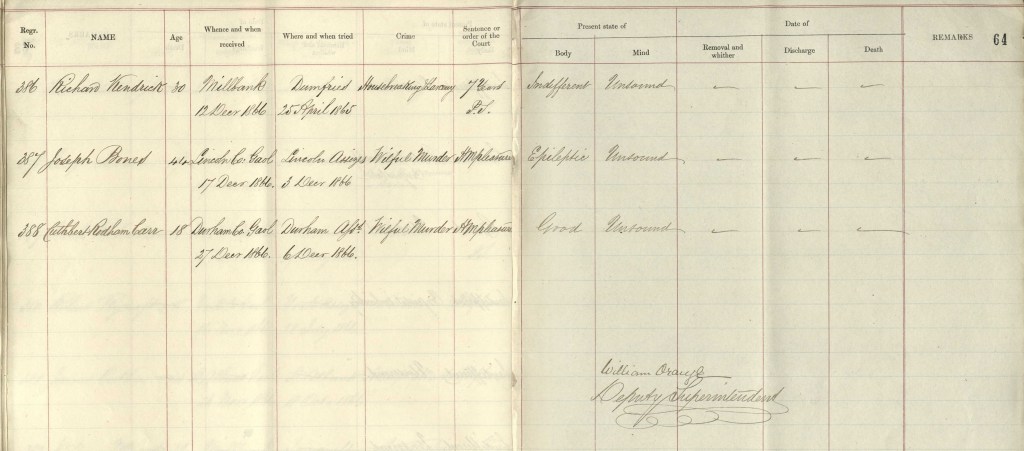 Regr. No. NAME Age Whence and when received Where and when tried Crime Sentence or order of the Court Present state of Date of REMARKS 64
Body Mind Removal and whither Discharge Death
386 Richard Kendrick 30 Millbank Dumfries Housebreaking Larceny 7 Years Indifferent Unsound — — —
12 Decr 1866 25 April 1865 P.S.
387 Joseph Bones 44 Lincoln Co. Gaol Lincoln Assizes Wilful Murder HM pleasure Epileptic Unsound — — —
17 Decr 1866. 3 Decr 1866
388 Cuthbert Rodham Carr 18 Durham Co. Gaol Durham Ass. Wilful Murder HM pleasure Good Unsound — — —
27 Decr 1866. 6 Decr 1866.
William Orange
Deputy Superintendent